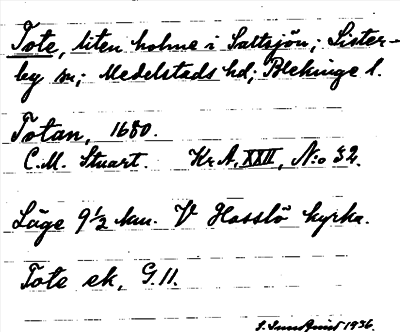 Tote, liten holme i Saltsjön; Sister-
by sn; Medelstads hd; Blekinge l.
Totan, 1680.
C.M. Stuart. Kr.A, XXII, N:o 32.
Läge 9½ km. V Hasslö kyrka.
Tote ek, G.11.
1936.